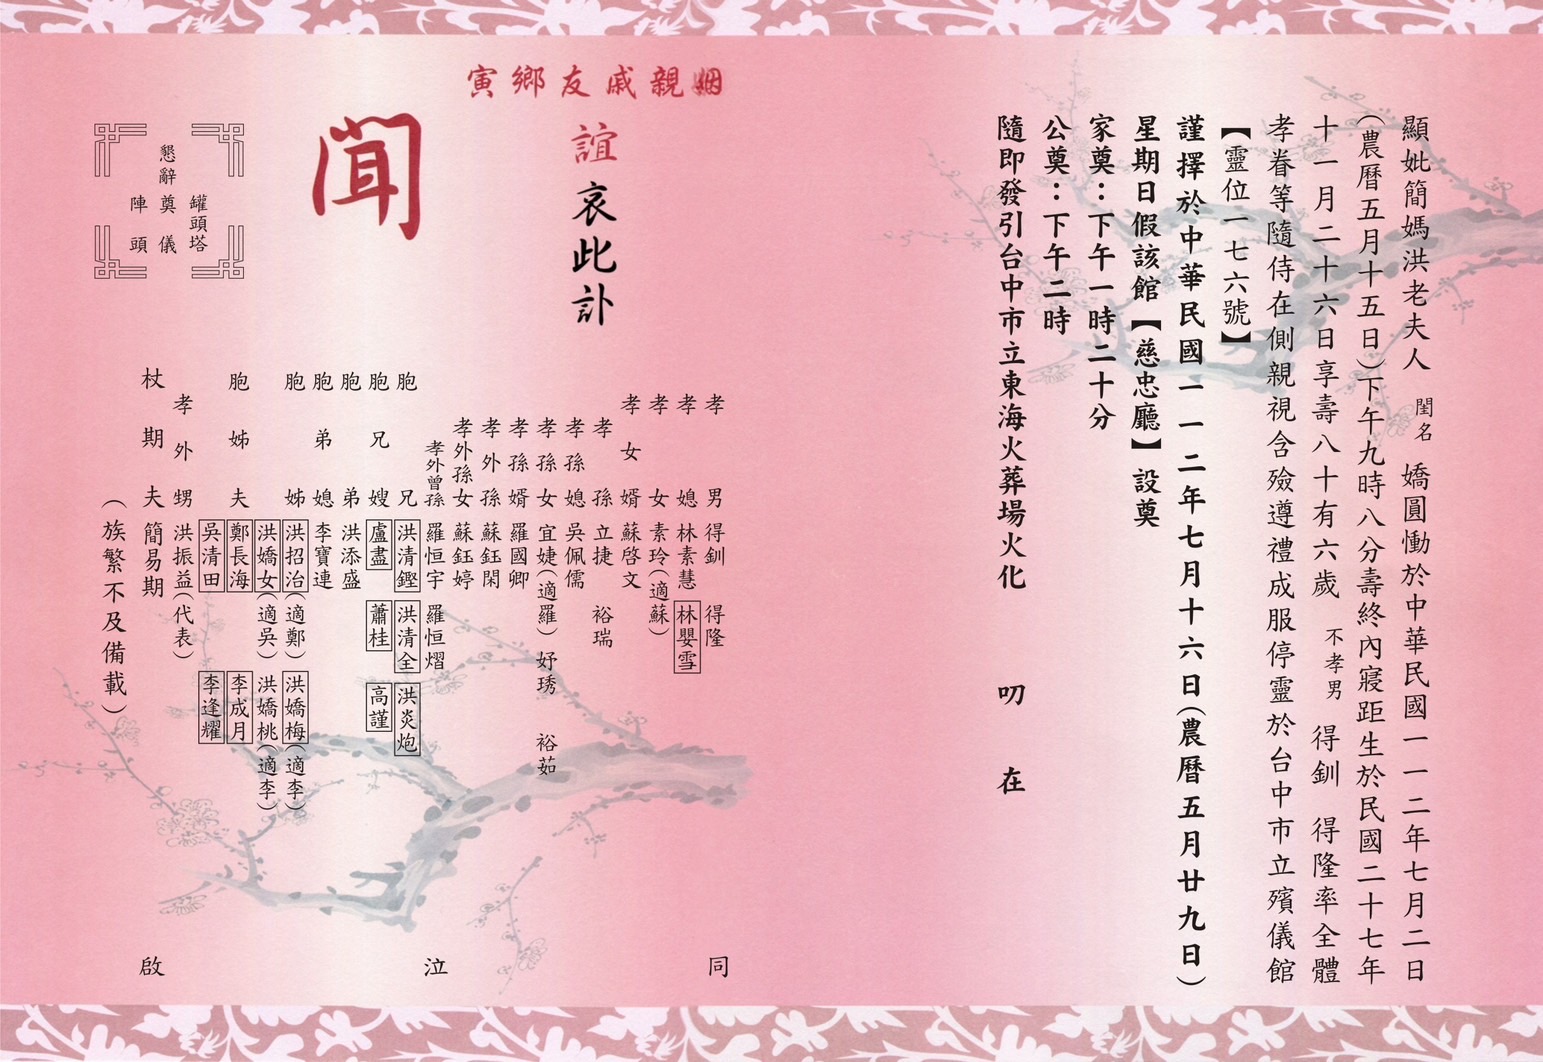 顯妣簡媽洪老夫人 閨名 嬌圓慟於中華民國一一二年七月二日
(農曆五月十五日)下午九時八分壽終內寢距生於民國二十七年
十一月二十六日享壽八十有六歲 不孝男 得釧 得隆率全體
孝眷等隨侍在側親視含殮遵禮成服停靈於台中市立殯儀館
【靈位一七六號】
謹擇於中華民國一一二年七月十六日(農曆五月廿九日)
星期日假該館【慈忠廳】設奠
家奠：下午一時二十分
公奠：下午二時
隨即發引台中市立東海火葬場火化 叨在
姻親戚友鄉寅
誼哀此訃
聞
罐頭塔
懇辭奠儀
陣頭
孝男 得釧 得隆
孝媳 林素慧 林嬰雪
孝女 素玲(適蘇)
孝女婿 蘇啓文
孝孫 立捷 裕瑞
孝孫媳 吳佩儒
孝孫女 宜婕(適羅) 妤琇 裕茹
孝孫婿 羅國卿
孝外孫 蘇鈺閑
孝外孫女 蘇鈺婷
孝外曾孫 羅恒宇 羅恒熠
胞兄 洪清鏗 洪清全 洪炎炮
胞兄嫂 盧盡 蕭桂 高謹
胞弟 洪添盛
胞弟媳 李寶連
胞姊 洪招治(適鄭) 洪嬌梅(適李)
洪嬌女(適吳) 洪嬌桃(適李)
胞姊夫 鄭長海 李成月
吳清田 李逢耀
孝外甥 洪振益(代表)
杖期夫 簡易期
(族繁不及備載)
同泣啟